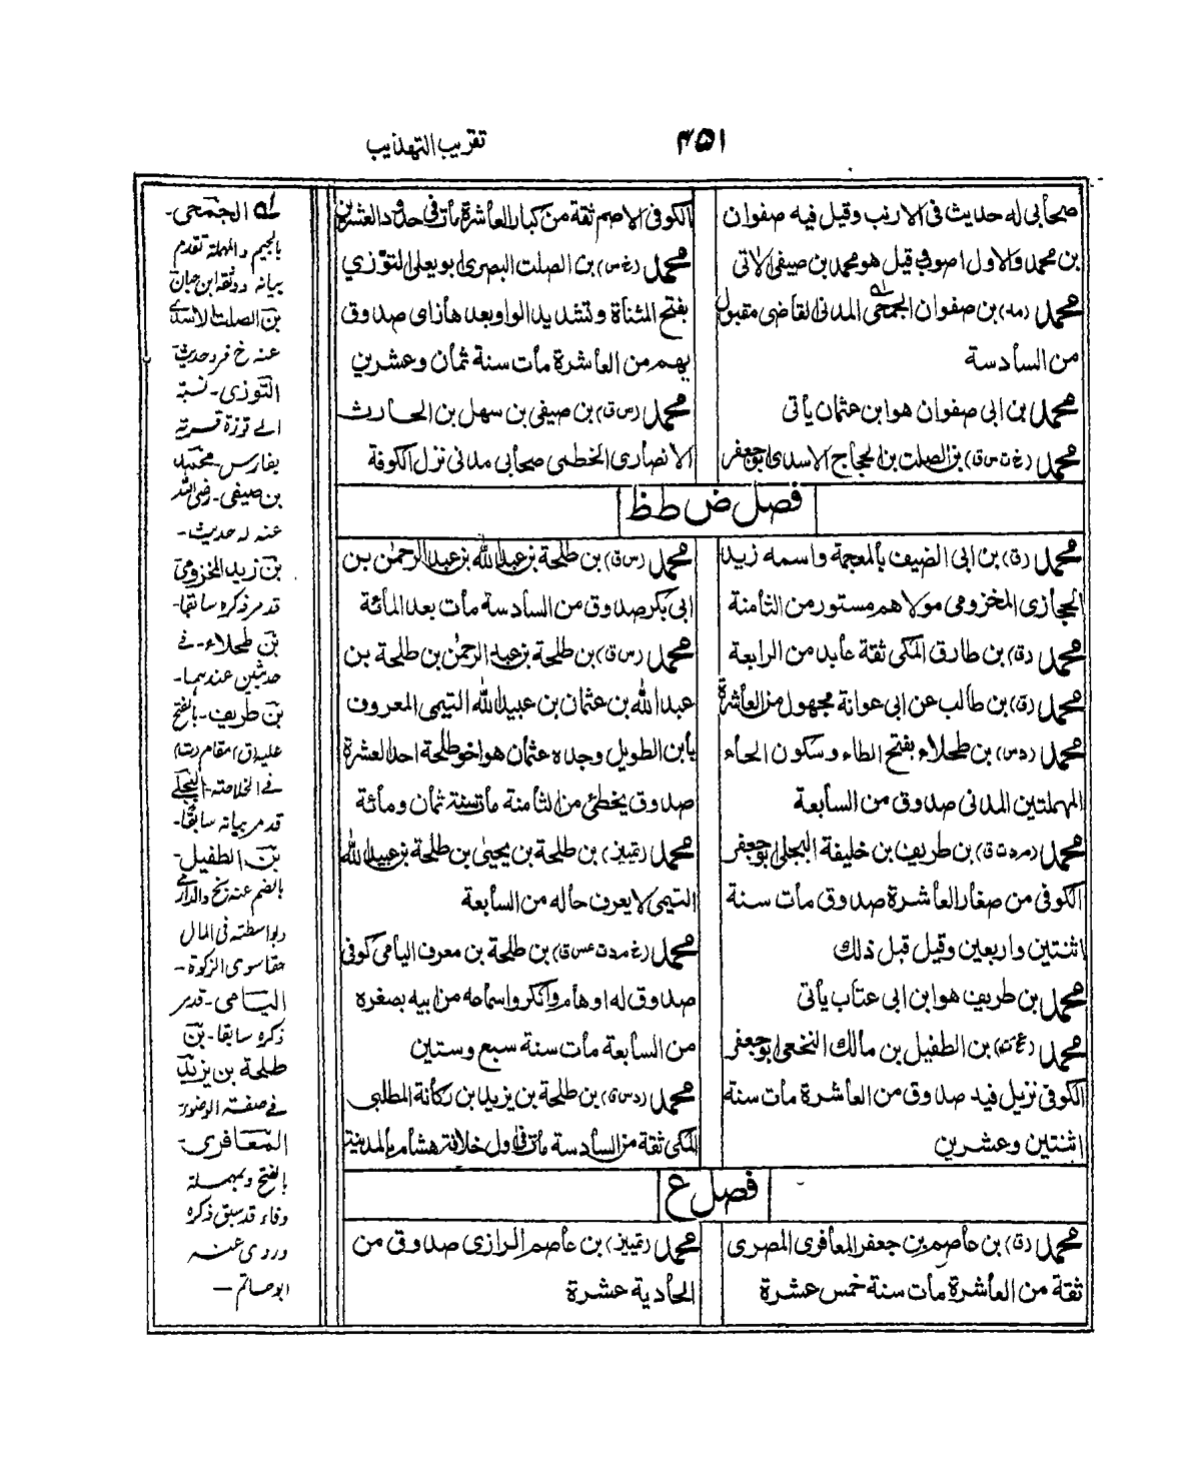 ٤٥١
تقريب التهذيب
صحابى له حديث فى الارنب وقيل فيه صفوان
بن محمد والاول اصوب قيل هو محمد بن صيفى الاتى
محمد (مد) بن صفوان الجمحى المدنى القاضى مقبول
من السادسة
محمد بن ابى صفوان هو ابن عثمان يأتى
محمد (خ ت س ق) بن الصلت بن الحجاج الاسدى ابو جعفر
الكوفى الاصم ثقة من كبار العاشرة مات فى حدود العشرين
محمد (خ س) بن الصلت البصرى ابو يعلى التوزي
بفتح المثناة وتشديد الواو بعدها زاى صدوق
يهم من العاشرة مات سنة ثمان وعشرين
محمد (س ق) بن صيفى بن سهل بن الحارث
الانصارى الخطمى صحابى مدنى نزل الكوفة
فصل ض ط ظ
محمد (ق) بن ابى الضيف بالمعجمة واسمه زيد
الحجازى المخزومى مولاهم مستور من الثامنة
محمد (ق) بن طارق المكى ثقة عابد من الرابعة
محمد (ق) بن طالب عن ابى عوانة مجهول من العاشرة
محمد (د س) بن طحلاء بفتح الطاء وسكون الحاء
المهملتين المدنى صدوق من السابعة
محمد (م د ت ق) بن طريف بن خليفة البجلى ابو جعفر
الكوفى من صغار العاشرة صدوق مات سنة
اثنتين واربعين وقيل قبل ذلك
محمد بن طريف هو ابن ابى عتاب يأتى
محمد (خ ت) بن الطفيل بن مالك النخعى ابو جعفر
الكوفى نزيل فيد صدوق من العاشرة مات سنة
اثنتين وعشرين
محمد (س ق) بن طلحة بن عبد الله بن عبد الرحمن بن
ابى بكر صدوق من السادسة مات بعد المائة
محمد (س ق) بن طلحة بن عبد الرحمن بن طلحة بن
عبد الله بن عثمان بن عبيد الله التيمى المعروف
بابن الطويل وجده عثمان هو اخو طلحة احد العشرة
صدوق يخطئ من الثامنة مات سنة ثمان ومائة
محمد (تمييز) بن طلحة بن يحيى بن طلحة بن عبيد الله
التيمى لا يعرف حاله من السابعة
محمد (خ م د ت عس ق) بن طلحة بن معرف اليامى كوفى
صدوق له اوهام وانكروا سماعه من ابيه بصغره
من السابعة مات سنة سبع وستين
محمد (د س ق) بن طلحة بن يزيد ابن ركانة المطلبى
المكى ثقة من السادسة مات فى اول خلافة هشام بالمدينة
فصل ع
محمد (ق) بن عاصم بن جعفر المعافرى المصرى
ثقة من العاشرة مات سنة خمس عشرة
محمد (تمييز) بن عاصم الرازى صدوق من
الحادية عشرة
له الجمحى-
بالجيم والمهملة تقدم
بيانه ووثقه ابن حبان
بن الصلت الاسدي
عنه خ فرد حديث
التوزى- نسبة
الى توزة قرية
بفارس- محمد
بن صيفى- رضى الله
عنه له حديث-
بن زيد المخزومى
قد مر ذكره سابقا-
بن طحلاء- فى
حديثين عندهما-
بن طريف- بالفتح
عليه (ق) مقام (ت)
فى الخلاصة- البجلى
قد مر بيانه سابقا-
بن الطفيل-
بالضم عنه خ والدارمى
وبواسطة فى المال
حقا سوى الزكوة-
اليامى- قد مر
ذكره سابقا- بن
طلحة بن يزيد
فى صفة الوضوء
المعافرى-
بالفتح وبمهملة
وفاء قد سبق ذكره
وروى عنه
ابو حاتم -